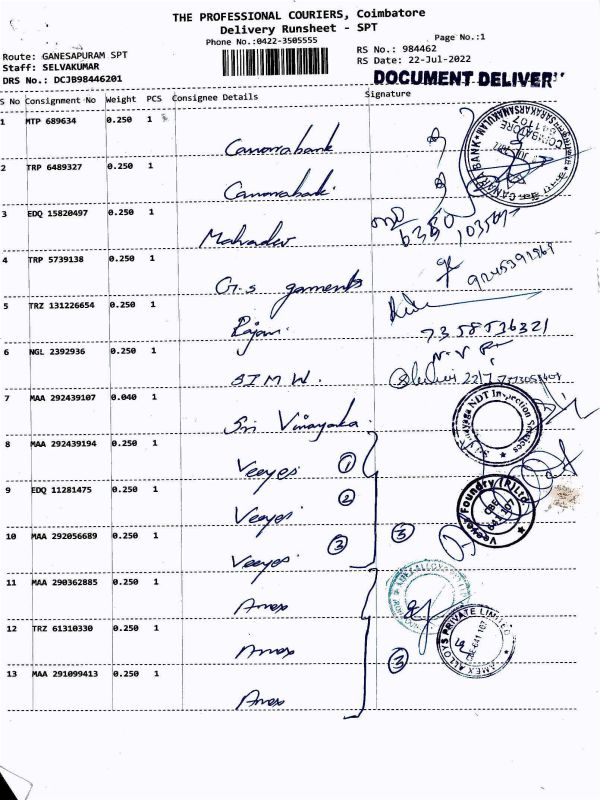 THE PROFESSIONAL COURIERS, Coimbatore
Delivery Runsheet - SPT
Phone No.:0422-3505555
Page No.:1
Route: GANESAPURAM SPT
RS No.: 984462
Staff: SELVAKUMAR
RS Date: 22-Jul-2022
DRS No.: DCJB98446201
DOCUMENT DELIVER
S No Consignment No Weight PCS Consignee Details Signature
1 MTP 689634 0.250 1 Canarabank
2 TRP 6489327 0.250 1 Canarabank
CANARA BANK
COIMBATORE
641107
3 EDQ 15820497 0.250 1 Mahadev
4 TRP 5739138 0.250 1 G.s garments
9245392969
5 TRZ 131226654 0.250 1 Rajan
7358536321
6 NGL 2392936 0.250 1 S I M W.
7 MAA 292439107 0.040 1 Sri Vinayaka
NDT Inspection Services
8 MAA 292439194 0.250 1 Veeyes 1
9 EDQ 11281475 0.250 1 Veeyes 2
Foundry (P)Ltd
CBE
641 107
10 MAA 292056689 0.250 1 Veeyes 3
3
11 MAA 290362885 0.250 1 Amex
12 TRZ 61310330 0.250 1 Amex
AMEX ALLOYS PRIVATE LIMITED
CBE-641 107
3
13 MAA 291099413 0.250 1 Amex